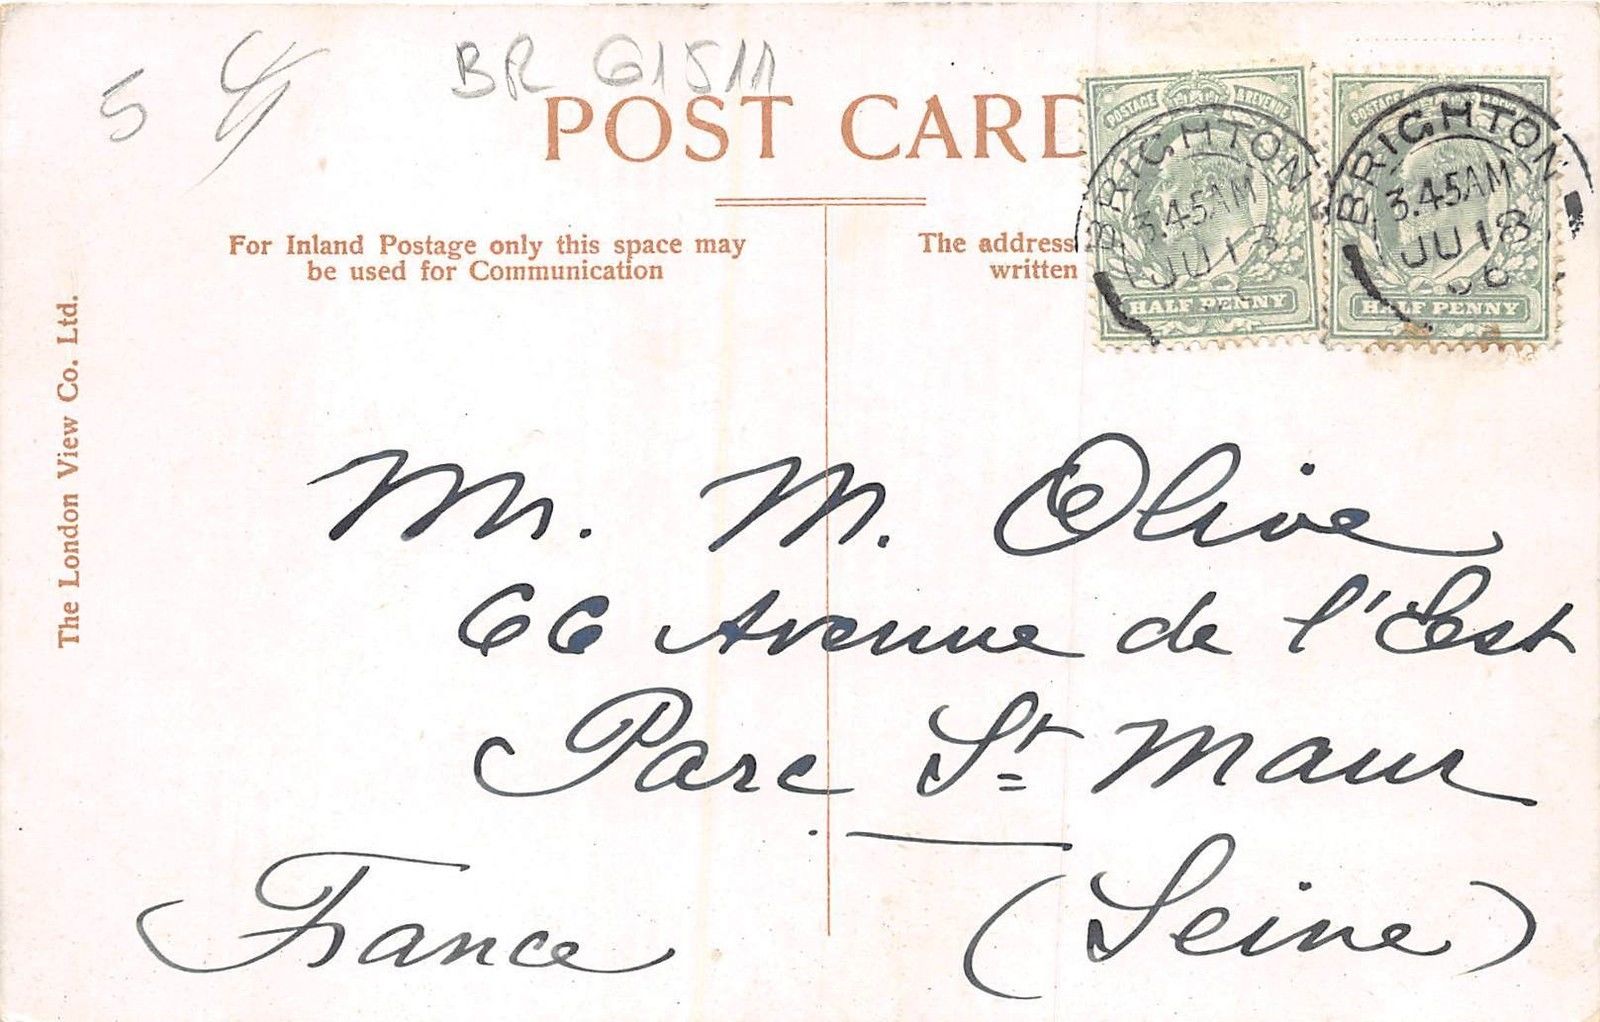 5
BR 61511
POST CARD
POSTAGE & REVENUE
BRIGHTON
3.45AM
JU 18
HALF PENNY
POSTAGE & REVENUE
BRIGHTON
3.45AM
JU 18
06
HALF PENNY
For Inland Postage only this space may
be used for Communication
The address
written
The London View Co. Ltd.
Mr. M. Olive
66 Avenue de l'Est
Parc St Maur
(Seine)
France